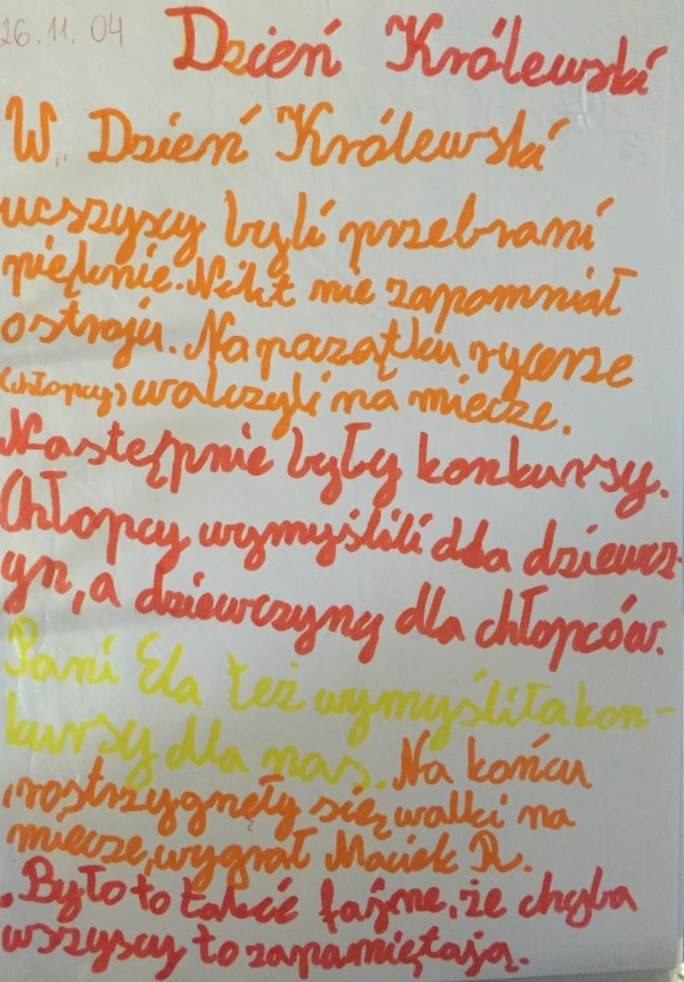 26.11.04
Dzień Królewski
W Dzień Królewski
wszyscy byli przebrani
pięknie. Nikt nie zapomniał
o stroju. Na początku rycerze
(chłopcy) walczyli na miecze.
Następnie były konkursy.
Chłopcy wymyślili dla dziewcz-
yn, a dziewczyny dla chłopców.
Pani Ela też wymyśliła kon-
kursy dla nas. Na końcu
rostrzygnęły się walki na
miecze, wygrał Maciek R.
Było to takie fajne, że chyba
wszyscy to zapamiętają.